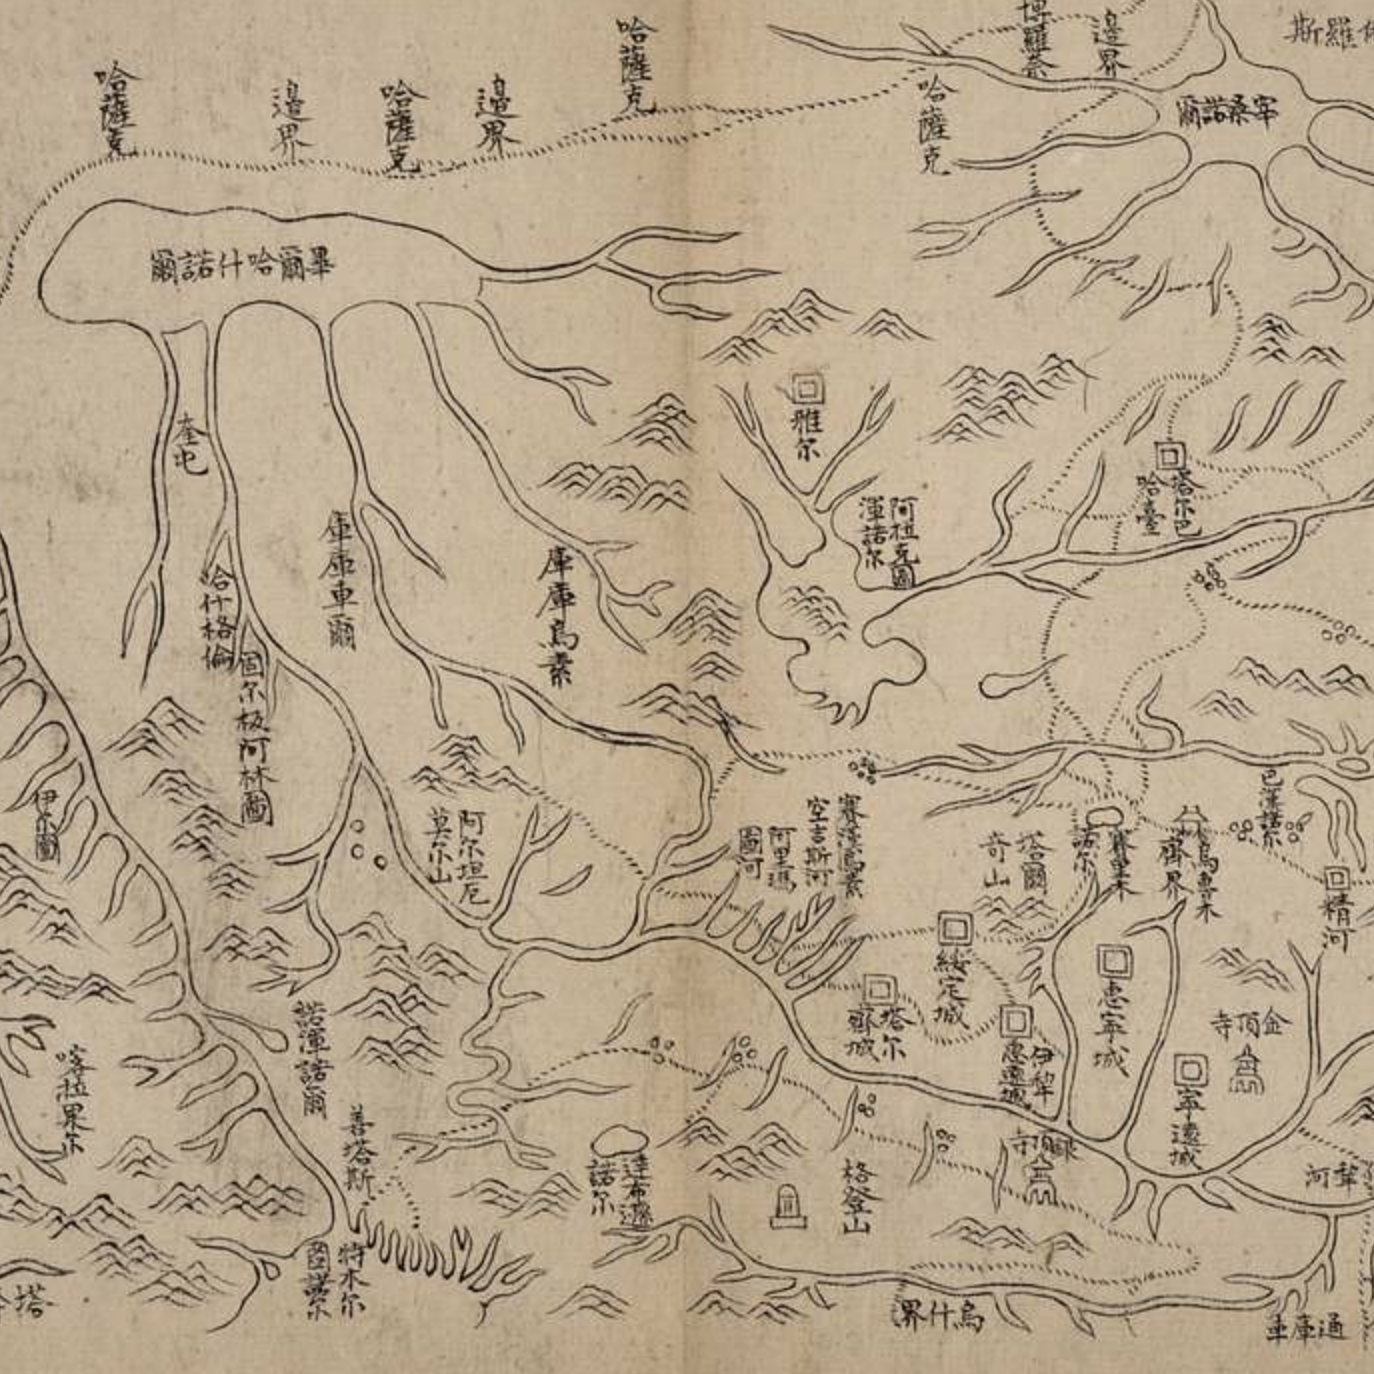 哈薩克
邊界
哈薩克
邊界
哈薩克
哈薩克
博羅奈
邊界
斯羅
宰桑諾爾
畢爾哈什諾爾
雅尔
奎屯
庫庫車爾
庫庫烏素
哈什格倫
固尔板阿林圖
阿拉克圖
渾諾尔
塔尔巴
哈臺
伊尔圖
阿尔坦厄
莫尔山
賽漢烏素
空吉斯河
阿里瑪
圖河
塔爾
奇山
賽里木
諾尔
烏魯木
齊界
巴漢諾尔
精河
綏定城
塔尔
齊城
惠寧城
伊犂
惠遠城
金頂寺
寧遠城
銀頂寺
犂河
喀拉果尔
諾渾諾爾
善塔斯
特木尔
圖諾尔
達布遜
諾尔
格登山
烏什界
通庫車
塔